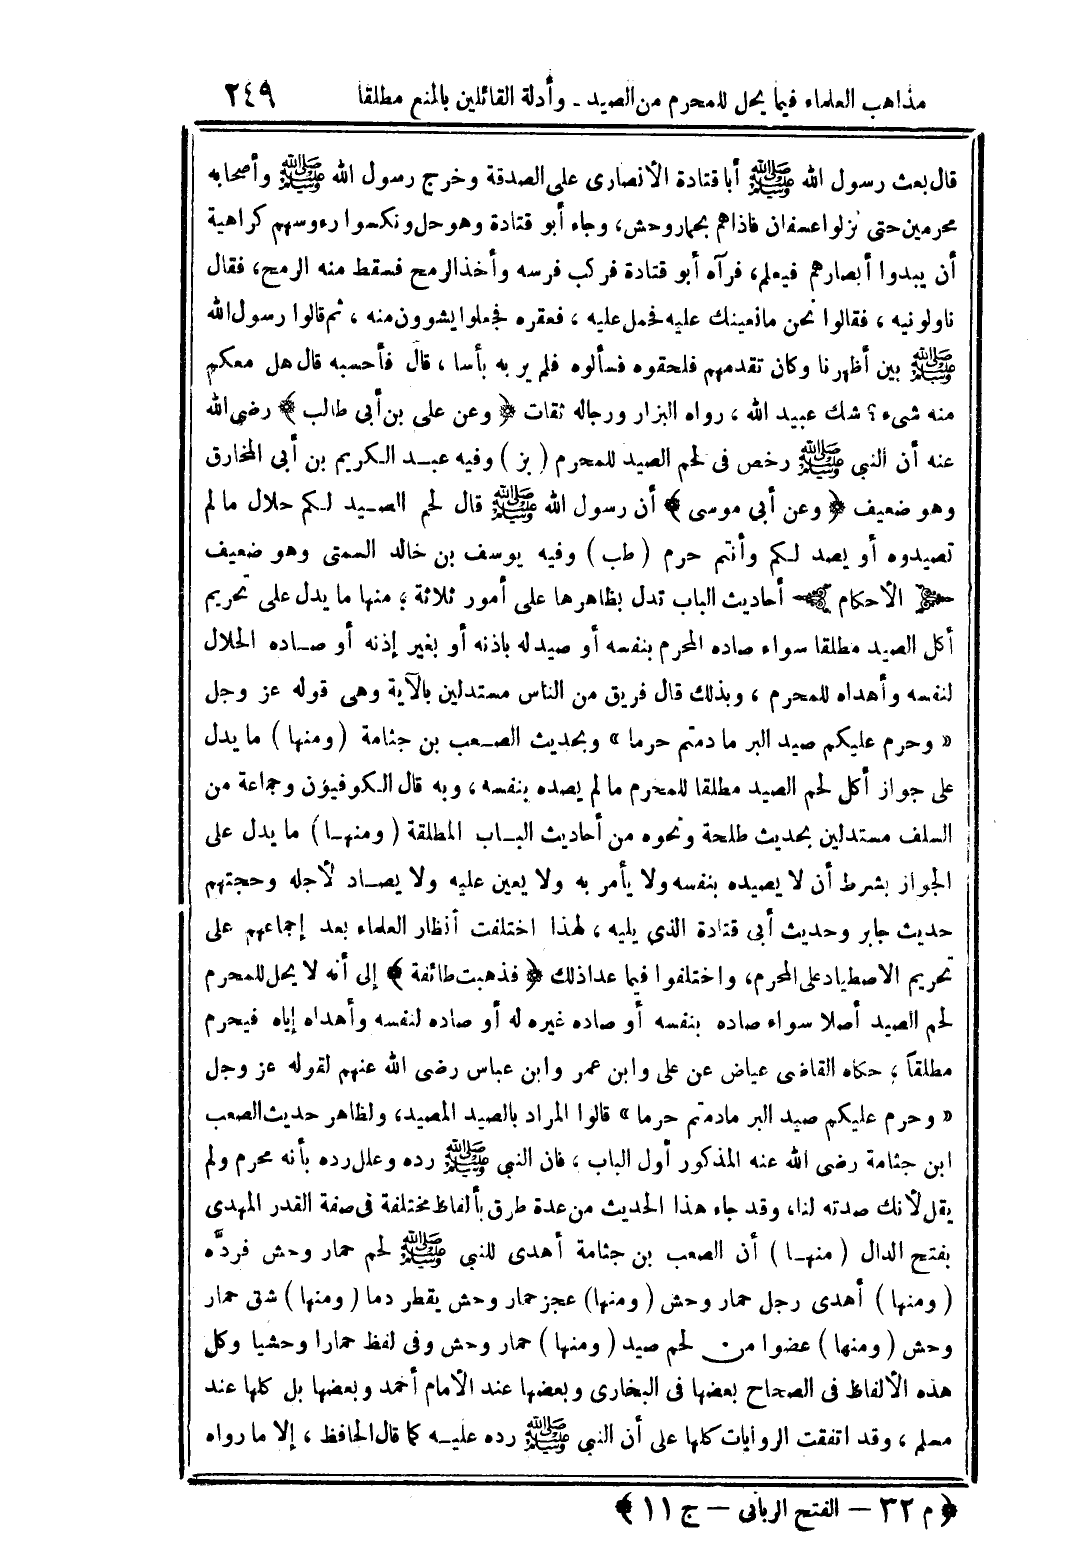 مذاهب العلماء فيما يحل للمحرم من الصيد - وأدلة القائلين بالمنع مطلقا ٢٤٩
قال بعث رسول الله ﷺ أبا قتادة الأنصارى على الصدقة وخرج رسول الله ﷺ وأصحابه
محرمين حتى نزلوا عسفان فاذاهم بحمار وحش، وجاء أبو قتادة وهو حل ونكسوا رءوسهم كراهية
أن يبدوا أبصارهم فيعلم، فرآه أبو قتادة فركب فرسه وأخذ الرمح فسقط منه الرمح، فقال
ناولونيه ، فقالوا نحن ما نعينك عليه فحمل عليه ، فعقره فجعلوا يشوون منه ، ثم قالوا رسول الله
ﷺ بين أظهرنا وكان تقدمهم فلحقوه فسألوه فلم ير به بأسا ، قال فأحسبه قال هل معكم
منه شىء ؟ شك عبيد الله ، رواه البزار ورجاله ثقات ﴿ وعن على بن أبي طالب ﴾ رضى الله
عنه أن النبي ﷺ رخص فى لحم الصيد للمحرم ( بز ) وفيه عبد الكريم بن أبي المخارق
وهو ضعيف ﴿ وعن أبي موسى ﴾ أن رسول الله ﷺ قال لحم الصيد لكم حلال ما لم
تصيدوه أو يصد لكم وأنتم حرم ( طب ) وفيه يوسف بن خالد السمتى وهو ضعيف
﴿ الأحكام ﴾ أحاديث الباب تدل بظاهرها على أمور ثلاثة ؛ منها ما يدل على تحريم
أكل الصيد مطلقا سواء صاده المحرم بنفسه أو صيد له باذنه أو بغير إذنه أو صاده الحلال
لنفسه وأهداه للمحرم ، وبذلك قال فريق من الناس مستدلين بالآية وهى قوله عز وجل
« وحرم عليكم صيد البر ما دمتم حرما » وبحديث الصعب بن جثامة ( ومنها ) ما يدل
على جواز أكل لحم الصيد مطلقا للمحرم ما لم يصده بنفسه ، وبه قال الكوفيون وجماعة من
السلف مستدلين بحديث طلحة ونحوه من أحاديث الباب المطلقة ( ومنها ) ما يدل على
الجواز بشرط أن لا يصيده بنفسه ولا يأمر به ولا يعين عليه ولا يصاد لأجله وحجتهم
حديث جابر وحديث أبى قتادة الذى يليه ، لهذا اختلفت أنظار العلماء بعد إجماعهم على
تحريم الاصطياد على المحرم، واختلفوا فيما عدا ذلك ﴿ فذهبت طائفة ﴾ إلى أنه لا يحل للمحرم
لحم الصيد أصلا سواء صاده بنفسه أو صاده غيره له أو صاده لنفسه وأهداه إياه فيحرم
مطلقاً ؛ حكاه القاضى عياض عن على وابن عمر وابن عباس رضى الله عنهم لقوله عز وجل
« وحرم عليكم صيد البر مادمتم حرما » قالوا المراد بالصيد المصيد، ولظاهر حديث الصعب
ابن جثامة رضى الله عنه المذكور أول الباب ، فان النبي ﷺ رده وعلل رده بأنه محرم ولم
يقل لأنك صدته لنا، وقد جاء هذا الحديث من عدة طرق بألفاظ مختلفة فى صفة القدر المهدى
بفتح الدال ( منها ) أن الصعب بن جثامة أهدى للنبي ﷺ لحم حمار وحش فردَّه
( ومنها ) أهدى رجل حمار وحش ( ومنها ) عجز حمار وحش يقطر دما ( ومنها ) شق حمار
وحش ( ومنها ) عضوا من لحم صيد ( ومنها ) حمار وحش وفى لفظ حمارا وحشيا وكل
هذه الألفاظ فى الصحاح بعضها فى البخارى وبعضها عند الأمام أحمد وبعضها بل كلها عند
مسلم ، وقد اتفقت الروايات كلها على أن النبي ﷺ رده عليه كما قال الحافظ ، إلا ما رواه
﴿ م ٣٢ – الفتح الربانى – ج ١١ ﴾